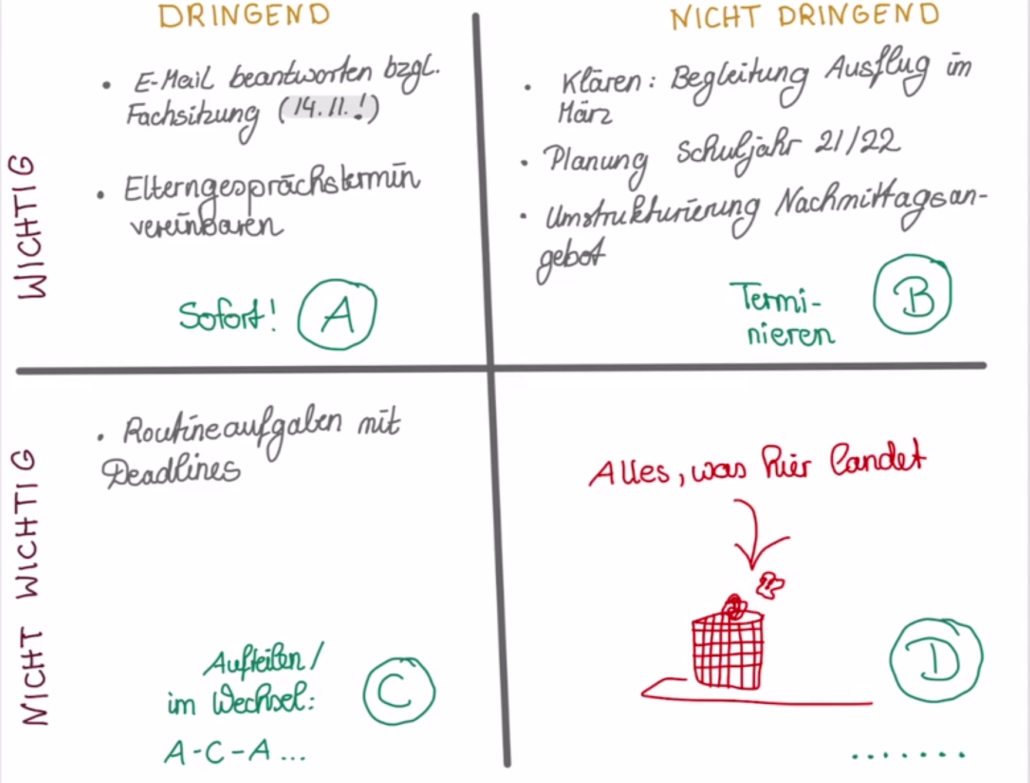 DRINGEND
NICHT DRINGEND
WICHTIG
• E-Mail beantworten bzgl.
Fachsitzung (14.11.!)
• Elterngesprächstermin
vereinbaren
Sofort! A
• Klären: Begleitung Ausflug im
März
• Planung Schuljahr 21/22
• Umstrukturierung Nachmittagsan-
gebot
Termi-
nieren
B
NICHT WICHTIG
• Routineaufgaben mit
Deadlines
Aufteilen/
im Wechsel:
A-C-A...
C
Alles, was hier landet
D
.......